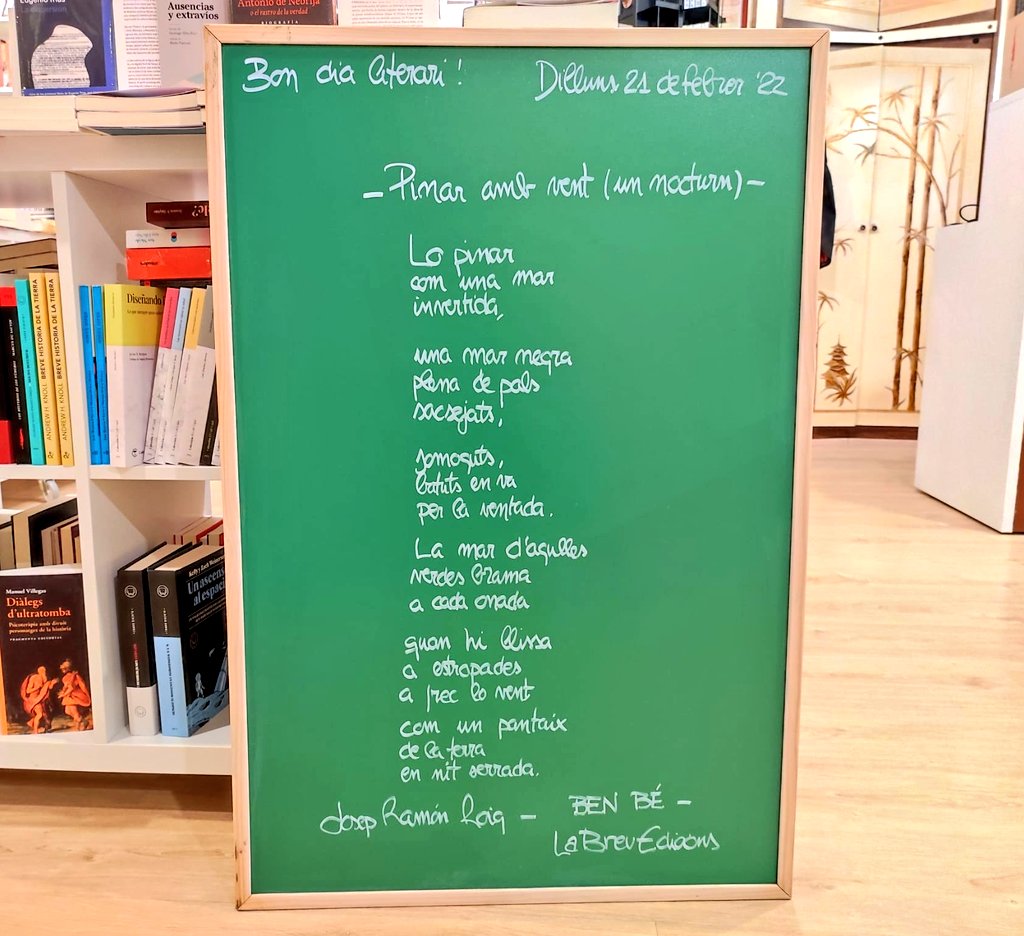 Ausencias
y extravíos
Antonio de Nebrija
o el rastro de la verdad
BIOGRAFÍA
Bon dia literari!
Dilluns 21 de febrer '22
– Pinar amb vent (un nocturn) –
Lo pinar
com una mar
invertida,
una mar negra
plena de pals
sacsejats,
somoguts,
batuts en va
per la ventada.
La mar d'agulles
verdes brama
a cada onada
quan hi llissa
a estropades
a frec lo vent
com un panteix
de la terra
en nit serrada.
Josep Ramón Roig –
BEN BÉ –
LaBreuEdicions
Diseñando
BREVE HISTORIA DE LA TIERRA
ANDREW H. KNOLL
BREVE HISTORIA DE LA TIERRA
ANDREW H. KNOLL
Manuel Villegas
Diàlegs
d'ultratomba
Psicoteràpia amb divuit
personatges de la història
FRAGMENTA EDITORIAL
Un ascens
al espaci